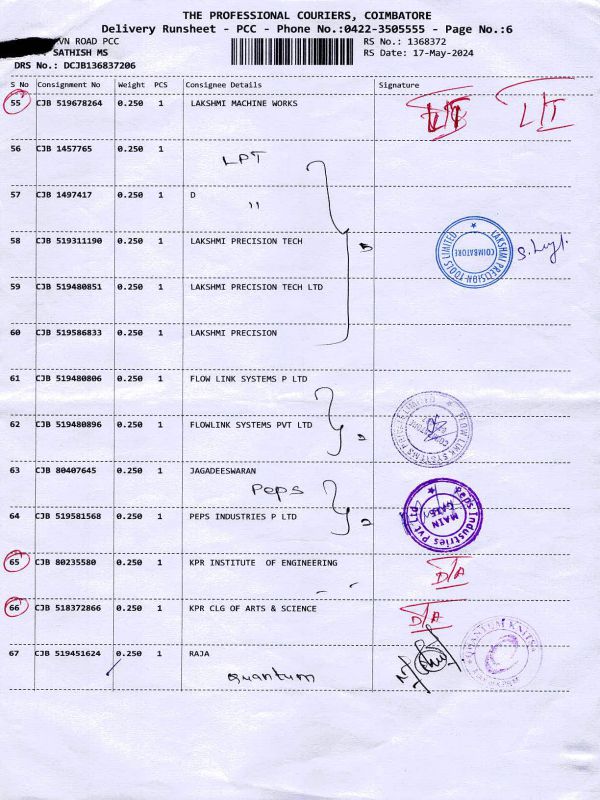 THE PROFESSIONAL COURIERS, COIMBATORE
Delivery Runsheet - PCC - Phone No.:0422-3505555 - Page No.:6
VN ROAD PCC RS No.: 1368372
SATHISH MS RS Date: 17-May-2024
DRS No.: DCJB136837206
S No Consignment No Weight PCS Consignee Details Signature
55 CJB 519678264 0.250 1 LAKSHMI MACHINE WORKS L/T
56 CJB 1457765 0.250 1
LPT
57 CJB 1497417 0.250 1 D
"
58 CJB 519311190 0.250 1 LAKSHMI PRECISION TECH
LAKSHMI PRECISION TOOLS LIMITED
COIMBATORE
59 CJB 519480851 0.250 1 LAKSHMI PRECISION TECH LTD
60 CJB 519586833 0.250 1 LAKSHMI PRECISION
61 CJB 519480806 0.250 1 FLOW LINK SYSTEMS P LTD
62 CJB 519480896 0.250 1 FLOWLINK SYSTEMS PVT LTD
FLOW LINK SYSTEMS PRIVATE LIMITED
63 CJB 80407645 0.250 1 JAGADEESWARAN
Peps
64 CJB 519581568 0.250 1 PEPS INDUSTRIES P LTD
Peps Industries Pvt Ltd
MAIN
GATE
65 CJB 80235580 0.250 1 KPR INSTITUTE OF ENGINEERING D/A
66 CJB 518372866 0.250 1 KPR CLG OF ARTS & SCIENCE D/A
67 CJB 519451624 0.250 1 RAJA
QUANTUM KNITS
Quantum